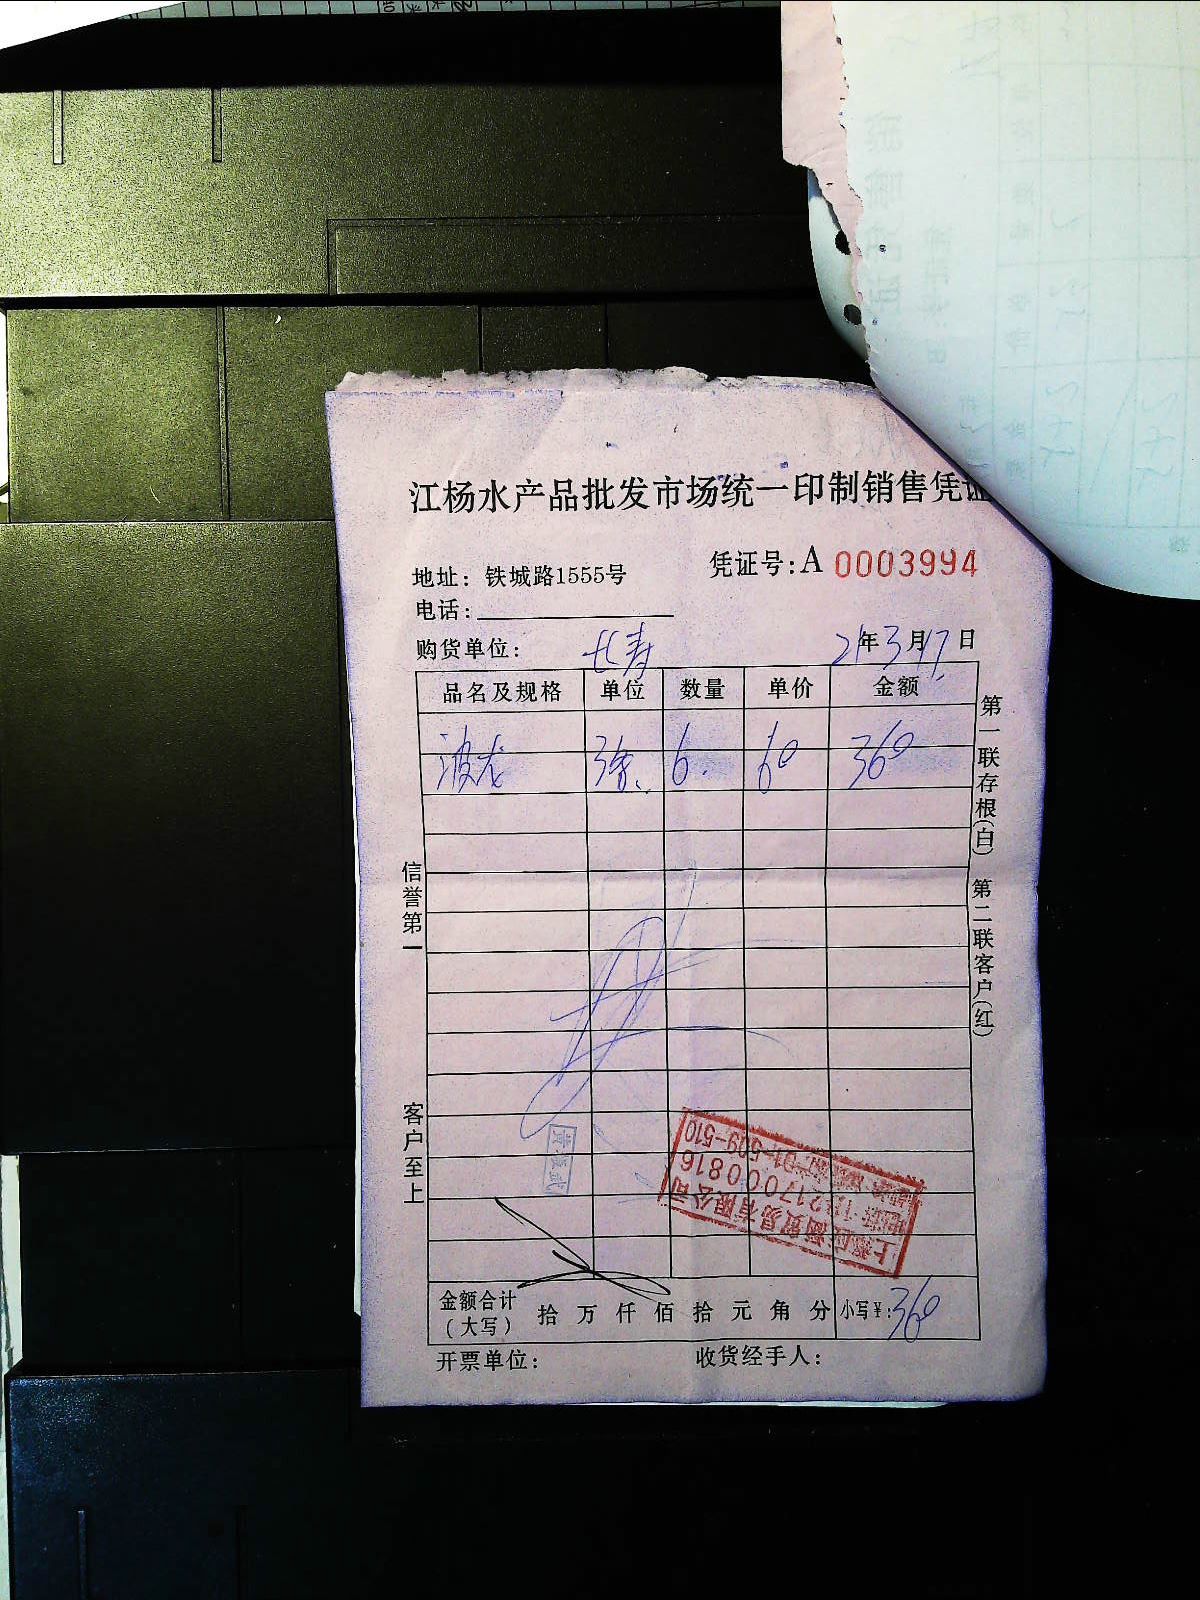 江杨水产品批发市场统一印制销售凭证
凭证号:A 0003994
地址: 铁城路1555号
电话:
购货单位: 长寿 21年3月17日
品名及规格 单位 数量 单价 金额
波龙 3 6. 60 360
第一联存根(白) 第二联客户(红)
信誉第一
客户至上
上海 商贸易有限公司
217000816
509-510
金额合计
(大写) 拾 万 仟 佰 拾 元 角 分 小写¥: 360
开票单位: 收货经手人: